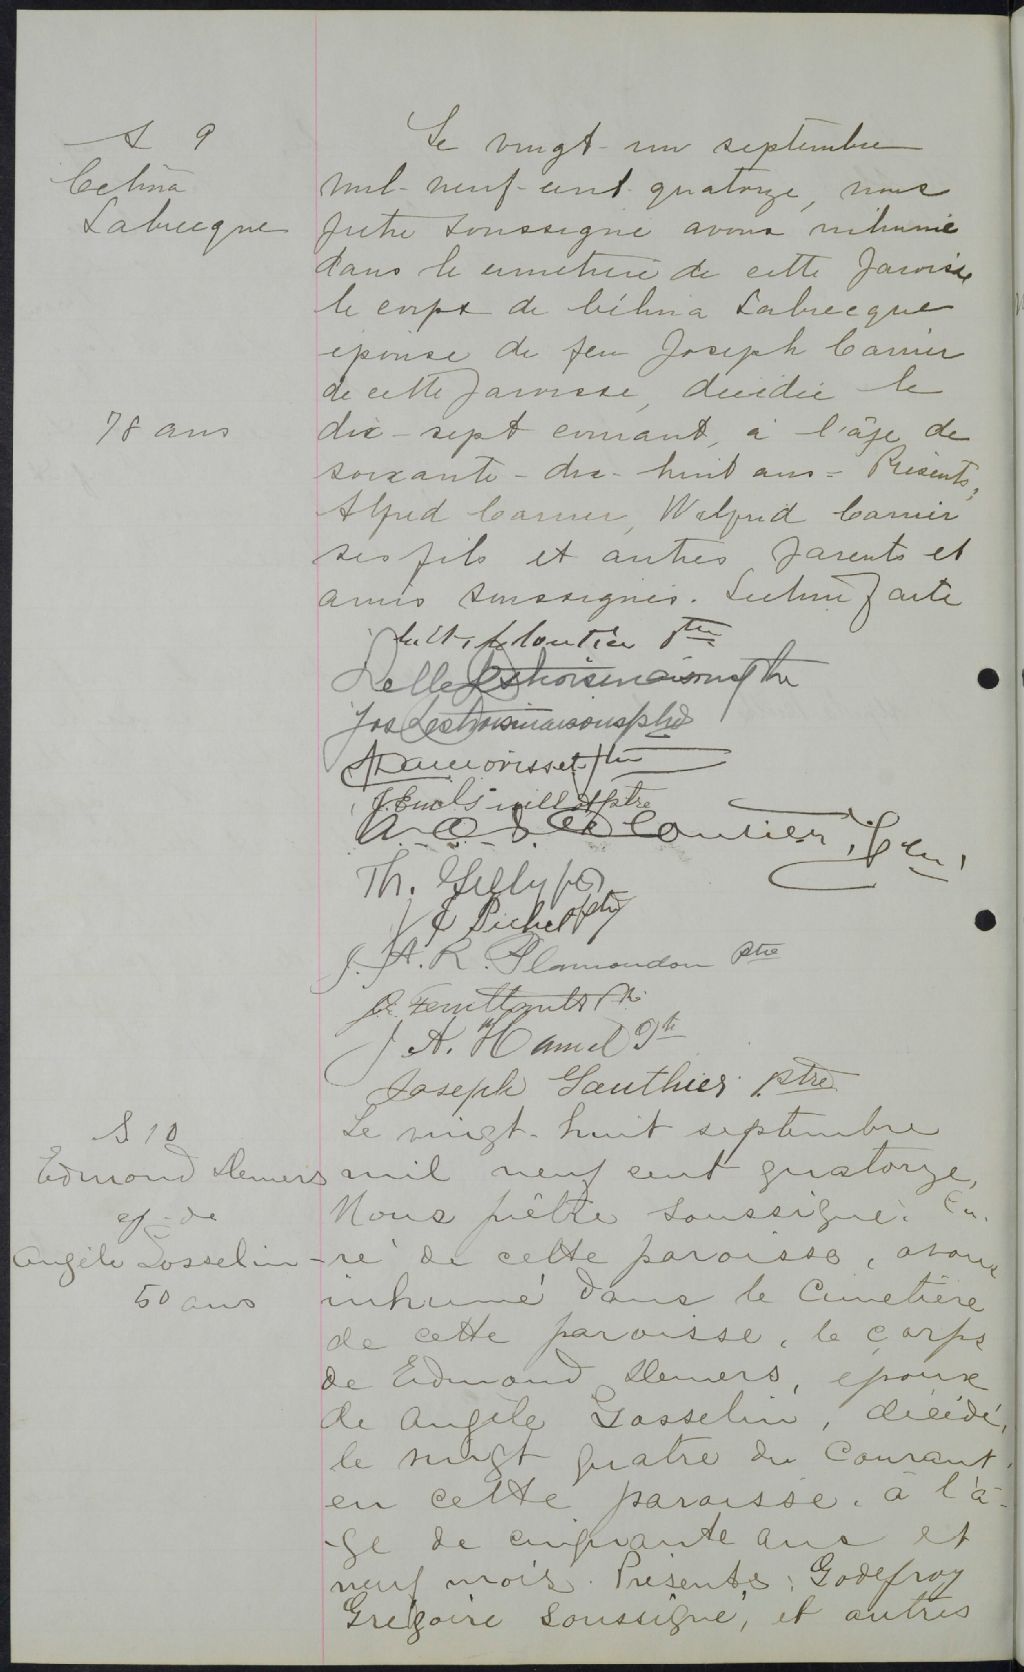 S 9
Célina
Labrecque
78 ans
Le vingt-un septembre
mil-neuf-cent quatorze, nous
prêtre soussigné avons inhumé
dans le cimetière de cette paroisse
le corps de Célina Labrecque
épouse de feu Joseph Carrier
de cette paroisse, décédée le
dix-sept courant, à l'âge de
soixante-dix-huit ans = Présents,
Alfred Carrier, Wilfrid Carrier
ses fils et autres parents et
amis soussignés. Lecture faite
Cloutier ptre
Deschoismaisons ptre
Jos Deschoismaisons ptre
Morisset ptre
J. Emile ptre
Cloutier, ptre
Th. ptre
Pichet ptre
J. A. R. Plamondon ptre
ptre
J A. Hamel ptre
Joseph Gauthier ptre
S 10
Edmond Demers
ép. de
Angèle Gosselin
50 ans
Le vingt-huit septembre
mil neuf cent quatorze,
Nous prêtre soussigné, Cu-
-ré de cette paroisse, avons
inhumé dans le Cimetière
de cette paroisse, le corps
de Edmond Demers, époux
de Angèle Gosselin, décédé,
le vingt quatre du Courant,
en cette paroisse, à l'â-
-ge de cinquante ans et
neuf mois. Présents: Godefroy
Grégoire soussigné, et autres